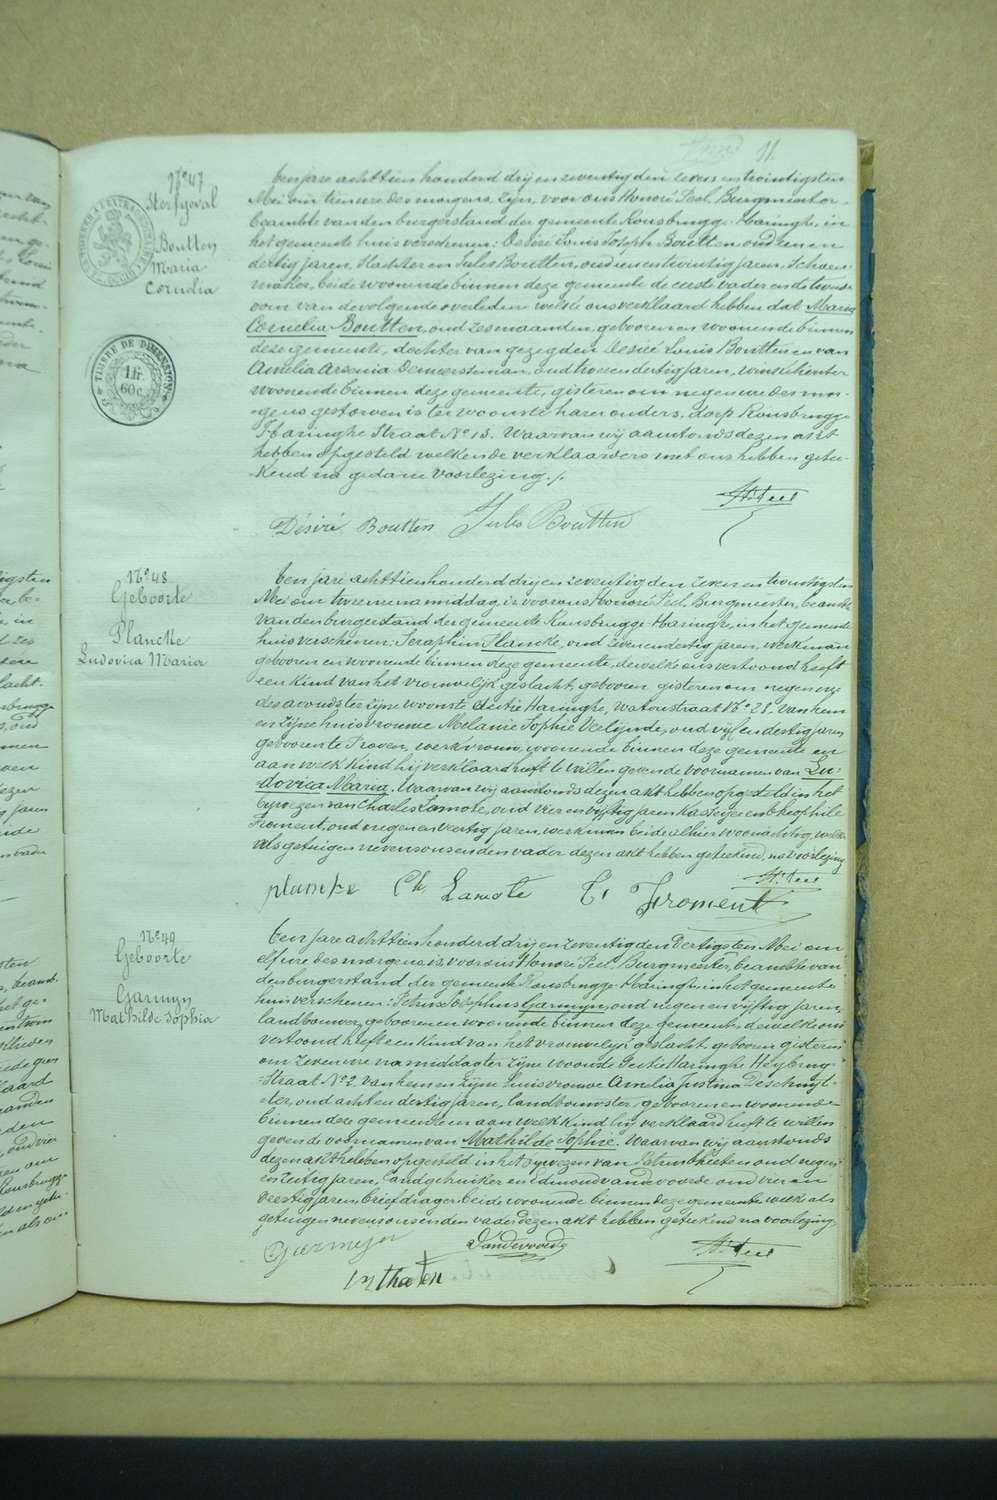 11.
N° 47
Sterfgeval
Boutten
Maria
Cornelia
TIMBRE DE DIMENSION
1 fr.
60 c.
Een jare achttien honderd drij en zeventig den zeven en twintigsten
Mei om tien ure des morgens, zijn, voor ons Honoré Peel, Burgmeester,
beambte van den burgerstand der gemeente Rousbrugge-Haringhe, in
het gemeente huis verschenen: Desiré Louis Joseph Boutten, oud een en
dertig jaren, Slachter en Jules Boutten, oud een en twintig jaren, Schoen-
maker, beide woonende binnen deze gemeente de eerste vader en de tweede
oom van de volgende overleden welke ons verklaard hebben dat Maria
Cornelia Boutten, oud zes maanden, geboren en woonende binnen
deze gemeente, dochter van gezegden Desiré Louis Boutten en van
Amelia Arsenia Demeersteman, oud twee en dertig jaren, winkelierster
woonende binnen deze gemeente, gisteren om negen ure des mor-
gens gestorven is ter woonste harer ouders, dorp Rousbrugge-
Haringhe Straat N° 13. Waarvan wij aanstonds dezen akt
hebben opgesteld welken de verklaarders met ons hebben getee-
kend na gedane voorlezing ./.
H. Peel
Désiré Boutten Jules Boutten
N° 48
Geboorte
Plancke
Ludovica Maria
Een jare achttien honderd drij en zeventig den zeven en twintigsten
Mei om twee ure namiddag, is voor ons Honoré Peel, Burgmeester, beambte
van den burgerstand der gemeente Rousbrugge-Haringhe, in het gemeente
huis verschenen: Seraphin Plancke, oud zeven en dertig jaren, werkman
geboren en woonende binnen deze gemeente, dewelke ons vertoond heeft
een kind van het vrouwelijk geslacht, geboren gisteren om negen ure
des avonds ter zijne woonste Sectie Haringhe, Watoustraat N° 28. van hem
en zijne huisvrouwe Melanie Sophie Verlijnde, oud vijf en dertig jaren
geboren te Proven, werkvrouw, woonende binnen deze gemeente en
aan welk kind hij verklaard heeft te willen geven de voornamen van Lu-
dovica Maria. Waarvan wij aanstonds dezen akt hebben opgesteld in het
bywezen van Charles Lamote, oud vier en vijftig jaren Kasteijer en Theophile
Froment, oud negen en veertig jaren, werkman beide alhier woonachtig, welke
als getuigen nevens ons en den vader dezen akt hebben geteekend, na voorlezing
H. Peel
plancke Ch. Lamote T. Froment
N° 49
Geboorte
Garmyn
Mathilde Sophia
Een jare achttien honderd drij en zeventig den Dertigsten Mei om
elf ure des morgens is, voor ons Honoré Peel, Burgmeester, beambte van
den burgerstand der gemeente Rousbrugge-Haringhe in het gemeente
huis verschenen: Petrus Josephus Garmyn, oud negen en vijftig jaren,
landbouwer, geboren en woonende binnen deze gemeente, dewelke ons
vertoond heeft een kind van het vrouwelijk geslacht, geboren gisteren
om zeven ure namiddag ter zijne woonste Sectie Haringhe Heybrug-
Straat N° 2. van hem en zijne huisvrouwe Amelia Justina Deschuyt-
ter, oud acht en dertig jaren, landbouwster, geboren en woonende
binnen deze gemeente en aan welk kind hij verklaard heeft te willen
geven de voornamen van Mathilde Sophie. Waarvan wij aanstonds
dezen akt hebben opgesteld in het bywezen van oud negen
en jaren, landgebruiker en Edmond Vandevoorde oud vier en
veertig jaren briefdrager, beide woonende binnen deze gemeente welk als
getuigen nevens ons en den vader dezen akt hebben geteekend na voorlezing
Vandevoorde
H. Peel